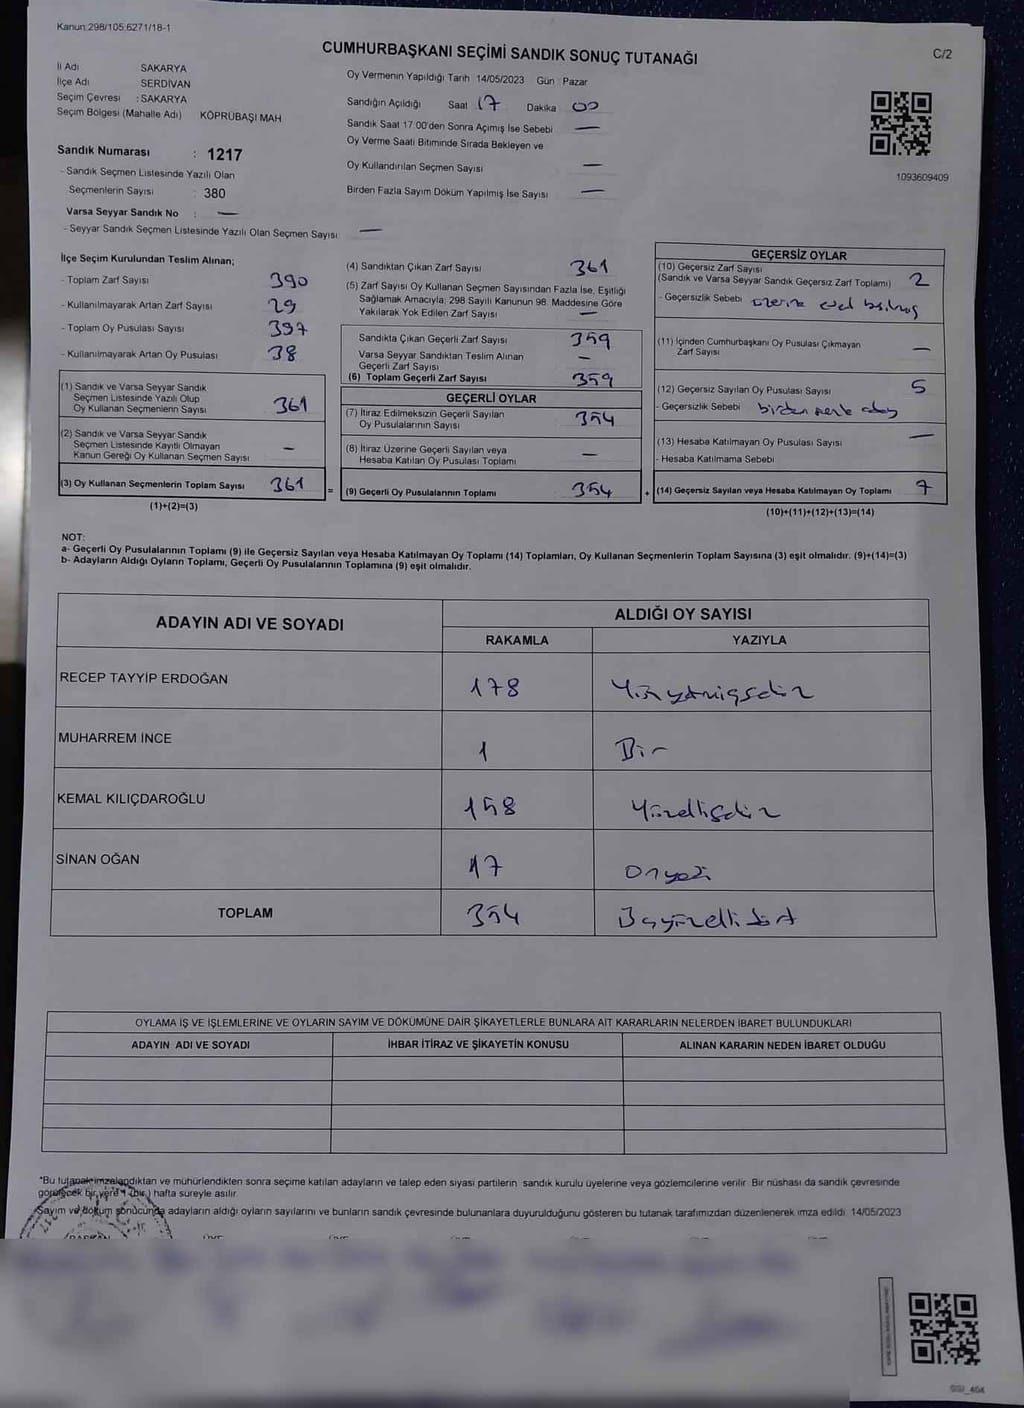 Kanun:298/105;6271/18-1
C/2
CUMHURBAŞKANI SEÇİMİ SANDIK SONUÇ TUTANAĞI
İl Adı SAKARYA
İlçe Adı SERDİVAN
Seçim Çevresi : SAKARYA
Seçim Bölgesi (Mahalle Adı) KÖPRÜBAŞI MAH
Sandık Numarası : 1217
- Sandık Seçmen Listesinde Yazılı Olan
Seçmenlerin Sayısı 380
Varsa Seyyar Sandık No : —
- Seyyar Sandık Seçmen Listesinde Yazılı Olan Seçmen Sayısı —
Oy Vermenin Yapıldığı Tarih 14/05/2023 Gün Pazar
Sandığın Açıldığı Saat 17 Dakika 00
Sandık Saat 17:00'den Sonra Açımış İse Sebebi —
Oy Verme Saati Bitiminde Sırada Bekleyen ve
Oy Kullandırılan Seçmen Sayısı —
Birden Fazla Sayım Döküm Yapılmış İse Sayısı —
1093609409
İlçe Seçim Kurulundan Teslim Alınan;
- Toplam Zarf Sayısı 390
- Kullanılmayarak Artan Zarf Sayısı 29
- Toplam Oy Pusulası Sayısı 397
- Kullanılmayarak Artan Oy Pusulası 38
(1) Sandık ve Varsa Seyyar Sandık
Seçmen Listesinde Yazılı Olup
Oy Kullanan Seçmenlerin Sayısı 361
(2) Sandık ve Varsa Seyyar Sandık
Seçmen Listesinde Kayıtlı Olmayan
Kanun Gereği Oy Kullanan Seçmen Sayısı —
(3) Oy Kullanan Seçmenlerin Toplam Sayısı 361
(1)+(2)=(3)
(4) Sandıktan Çıkan Zarf Sayısı 361
(5) Zarf Sayısı Oy Kullanan Seçmen Sayısından Fazla İse, Eşitliği
Sağlamak Amacıyla; 298 Sayılı Kanunun 98. Maddesine Göre
Yakılarak Yok Edilen Zarf Sayısı —
Sandıkta Çıkan Geçerli Zarf Sayısı 359
Varsa Seyyar Sandıktan Teslim Alınan
Geçerli Zarf Sayısı —
(6) Toplam Geçerli Zarf Sayısı 359
GEÇERLİ OYLAR
(7) İtiraz Edilmeksizin Geçerli Sayılan
Oy Pusulalarının Sayısı 354
(8) İtiraz Üzerine Geçerli Sayılan veya
Hesaba Katılan Oy Pusulası Toplamı —
= (9) Geçerli Oy Pusulalarının Toplamı 354
GEÇERSİZ OYLAR
(10) Geçersiz Zarf Sayısı
(Sandık ve Varsa Seyyar Sandık Geçersiz Zarf Toplamı) 2
- Geçersizlik Sebebi üzerine evet basılmış
(11) İçinden Cumhurbaşkanı Oy Pusulası Çıkmayan
Zarf Sayısı —
(12) Geçersiz Sayılan Oy Pusulası Sayısı 5
- Geçersizlik Sebebi birden fazla aday
(13) Hesaba Katılmayan Oy Pusulası Sayısı —
- Hesaba Katılmama Sebebi
+ (14) Geçersiz Sayılan veya Hesaba Katılmayan Oy Toplamı 7
(10)+(11)+(12)+(13)=(14)
NOT:
a- Geçerli Oy Pusulalarının Toplamı (9) ile Geçersiz Sayılan veya Hesaba Katılmayan Oy Toplamı (14) Toplamları, Oy Kullanan Seçmenlerin Toplam Sayısına (3) eşit olmalıdır. (9)+(14)=(3)
b- Adayların Aldığı Oyların Toplamı, Geçerli Oy Pusulalarının Toplamına (9) eşit olmalıdır.
ADAYIN ADI VE SOYADI
ALDIĞI OY SAYISI
RAKAMLA YAZIYLA
RECEP TAYYİP ERDOĞAN 178 Yüzyetmişsekiz
MUHARREM İNCE 1 Bir
KEMAL KILIÇDAROĞLU 158 Yüzellisekiz
SİNAN OĞAN 17 Onyedi
TOPLAM 354 Üçyüzellidört
OYLAMA İŞ VE İŞLEMLERİNE VE OYLARIN SAYIM VE DÖKÜMÜNE DAİR ŞİKAYETLERLE BUNLARA AİT KARARLARIN NELERDEN İBARET BULUNDUKLARI
ADAYIN ADI VE SOYADI
İHBAR İTİRAZ VE ŞİKAYETİN KONUSU
ALINAN KARARIN NEDEN İBARET OLDUĞU
*Bu tutanak imzalandıktan ve mühürlendikten sonra seçime katılan adayların ve talep eden siyasi partilerin sandık kurulu üyelerine veya gözlemcilerine verilir. Bir nüshası da sandık çevresinde
görülecek bir yere 1 (bir) hafta süreyle asılır.
Sayım ve döküm sonucunda adayların aldığı oyların sayılarını ve bunların sandık çevresinde bulunanlara duyurulduğunu gösteren bu tutanak tarafımızdan düzenlenerek imza edildi. 14/05/2023